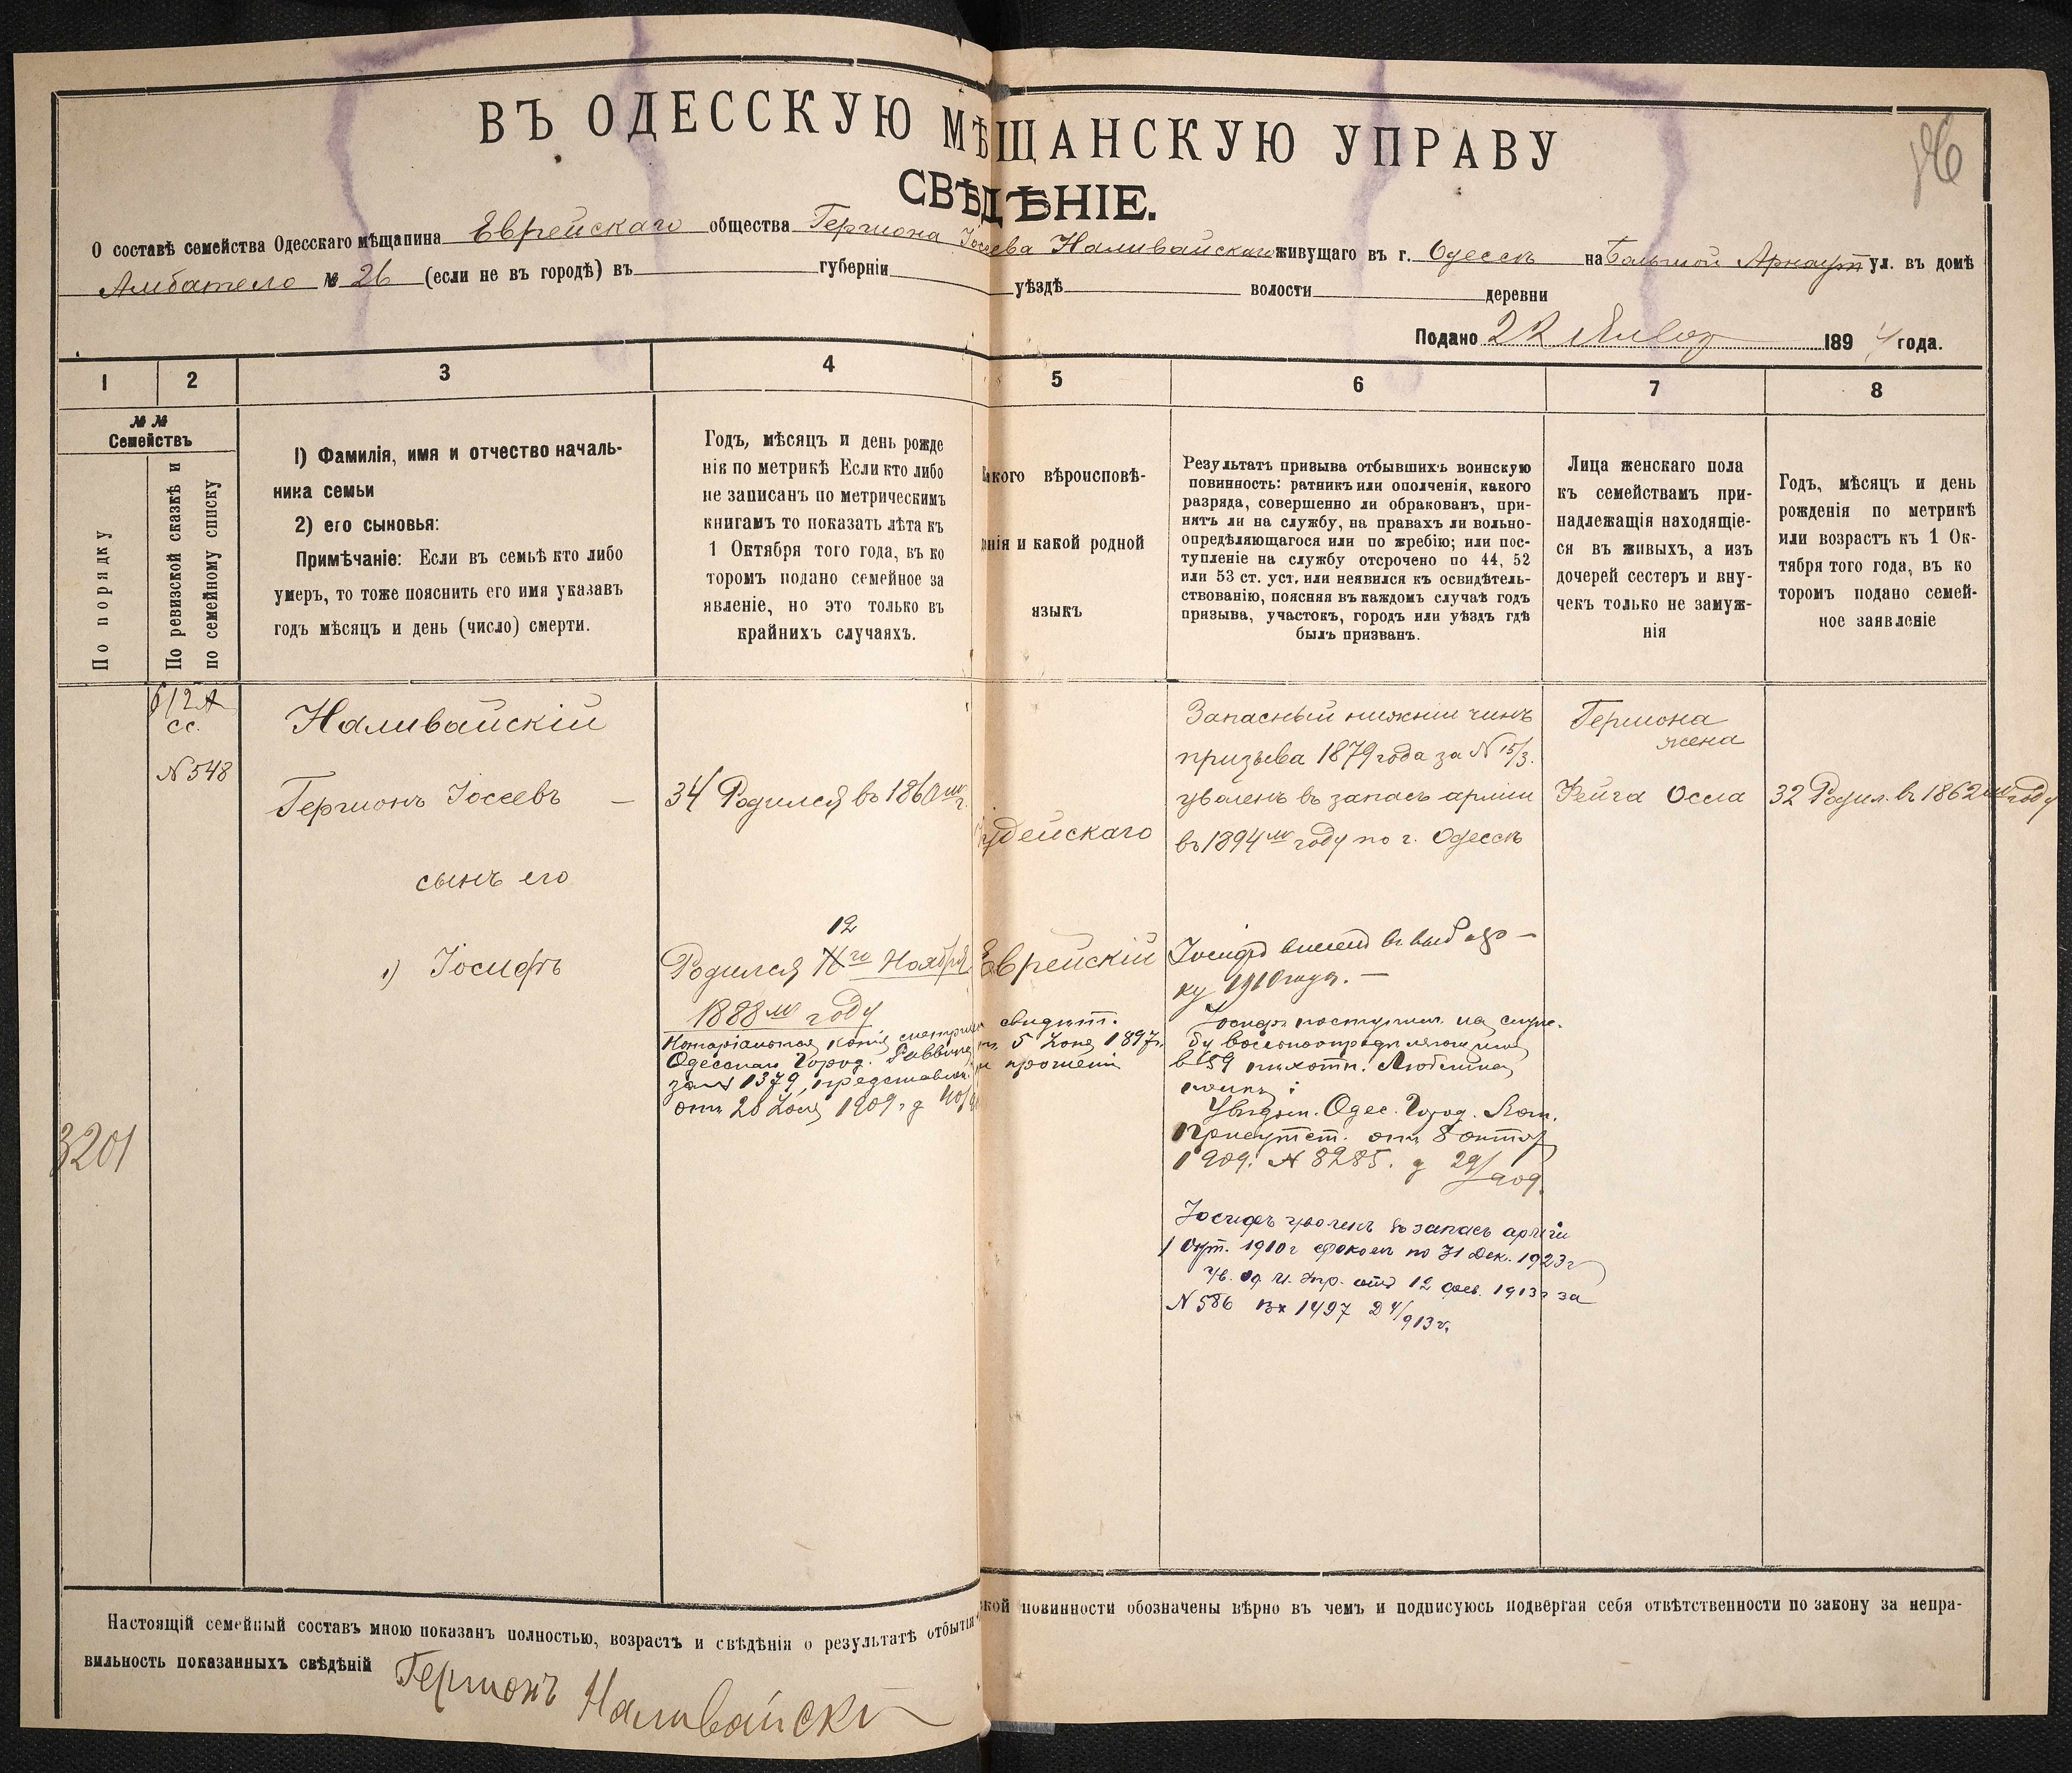 ВЪ ОДЕССКУЮ МѢЩАНСКУЮ УПРАВУ
СВѢДѢНІЕ.
О составѣ семейства Одесскаго мѣщанина Еврейскаго общества Гершона Іосева Наливайскаго живущаго въ г. Одессѣ на Большой Арнаут ул. въ домѣ
Амбатело № 26 (если не въ городѣ) въ губерніи уѣздѣ волости деревни
Подано 22 1894 года.
1 2 3 4 5 6 7 8
№ №
Семействъ
По порядку
По ревизской сказкѣ и
по семейному списку
1) Фамилія, имя и отчество началь-
ника семьи
2) его сыновья:
Примѣчаніе: Если въ семьѣ кто либо
умеръ, то тоже пояснить его имя указавъ
годъ мѣсяцъ и день (число) смерти.
Годъ, мѣсяцъ и день рожде
нія по метрикѣ Если кто либо
не записанъ по метрическимъ
книгамъ то показать лѣта къ
1 Октября того года, въ ко
торомъ подано семейное за
явленіе, но это только въ
крайнихъ случаяхъ.
Какого вѣроисповѣ-
данія и какой родной
языкъ
Результатъ призыва отбывшихъ воинскую
повинность: ратникъ или ополченія, какого
разряда, совершенно ли обракованъ, при-
нятъ ли на службу, на правахъ ли вольно-
опредѣляющагося или по жребію; или пос-
тупленіе на службу отсрочено по 44, 52
или 53 ст. уст. или неявился къ освидѣтель-
ствованію, поясняя въ каждомъ случаѣ годъ
призыва, участокъ, городъ или уѣздъ гдѣ
былъ призванъ.
Лица женскаго пола
къ семействамъ при-
надлежащія находящіе-
ся въ живыхъ, а изъ
дочерей сестеръ и вну-
чекъ только не замуж-
нія
Годъ, мѣсяцъ и день
рожденія по метрикѣ
или возрастъ къ 1 Ок-
тября того года, въ ко
торомъ подано семей-
ное заявленіе
сс.
№ 548
3201
Наливайскій
Гершонъ Іосевъ —
сынъ его
1) Іосифъ
34 Родился въ 1860 г.
12
Родился 11го Ноября
1888 м году
Нотаріальная копія метрич свидѣт.
Одесскаго Город. Раввина 5 1897 г.
за № 1379, представлен. прошеніи
отъ 28 1909 г. д
Іудейскаго
Еврейскій
Запасный нижній чинъ
призыва 1879 года за № 15/3.
уволенъ въ запасъ арміи
въ 1894 м году по г. Одессѣ
Іосифъ внесенъ въ
ку 1910 года. —
Іосифъ поступилъ на служ-
бу вольноопредѣляющимся
в 59 пѣхотн. Люблинск
полкъ;
Увѣдом. Одес. Город.
Присутст. отъ 8 октяб
1909. № 8285. д 29/909.
Іосифъ уволенъ въ запасъ арміи
1 Окт. 1910 г срокомъ по 31 Дек. 1923 г
Ув. од. отъ 12 фев. 1913 г за
№ 586 Вх 1497 Д 4/913 г.
Гершона
жена
Фейга Осла
32 Родил. въ 1862 м году
Настоящій семейный составъ мною показанъ полностью, возрастъ и свѣдѣнія о результатѣ отбытія ской повинности обозначены вѣрно въ чемъ и подписуюсь подвергая себя отвѣтственности по закону за непра-
вильность показанныхъ свѣдѣній Гершонъ Наливайскій